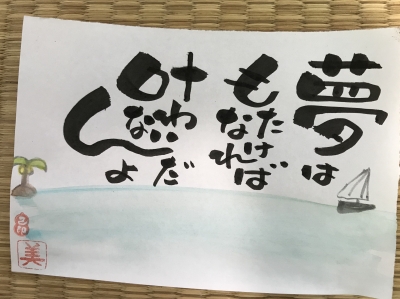 夢は
もたなければ
叶わないんだよ
美